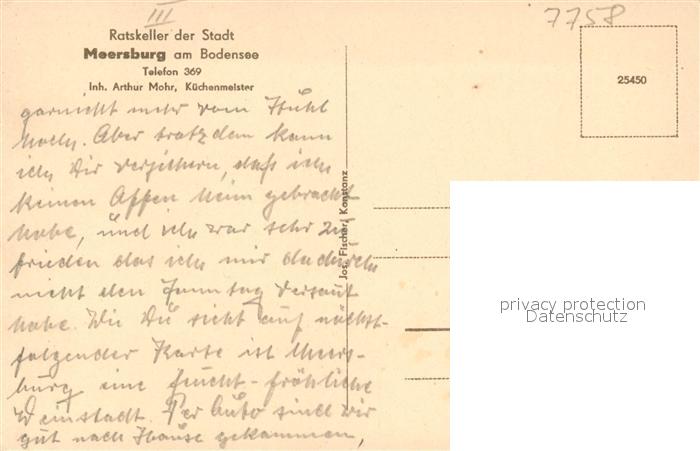 III
7758
Ratskeller der Stadt
Meersburg am Bodensee
Telefon 369
Inh. Arthur Mohr, Küchenmeister
25450
garnicht mehr vom Stuhl
hoch. Aber trotzdem kann
ich Dir versichern, daß ich
keinen Affen heim gebracht
habe, und ich war sehr zu-
frieden das ich mir dadurch
nicht den Sonntag versaut
habe. Wie Du siehst auf nächst-
folgender Karte ist Meers-
burg eine feucht-fröhliche
Weinstadt. Per Auto sind wir
gut nach Hause gekommen,
Jos. Fischer, Konstanz
privacy protection
Datenschutz